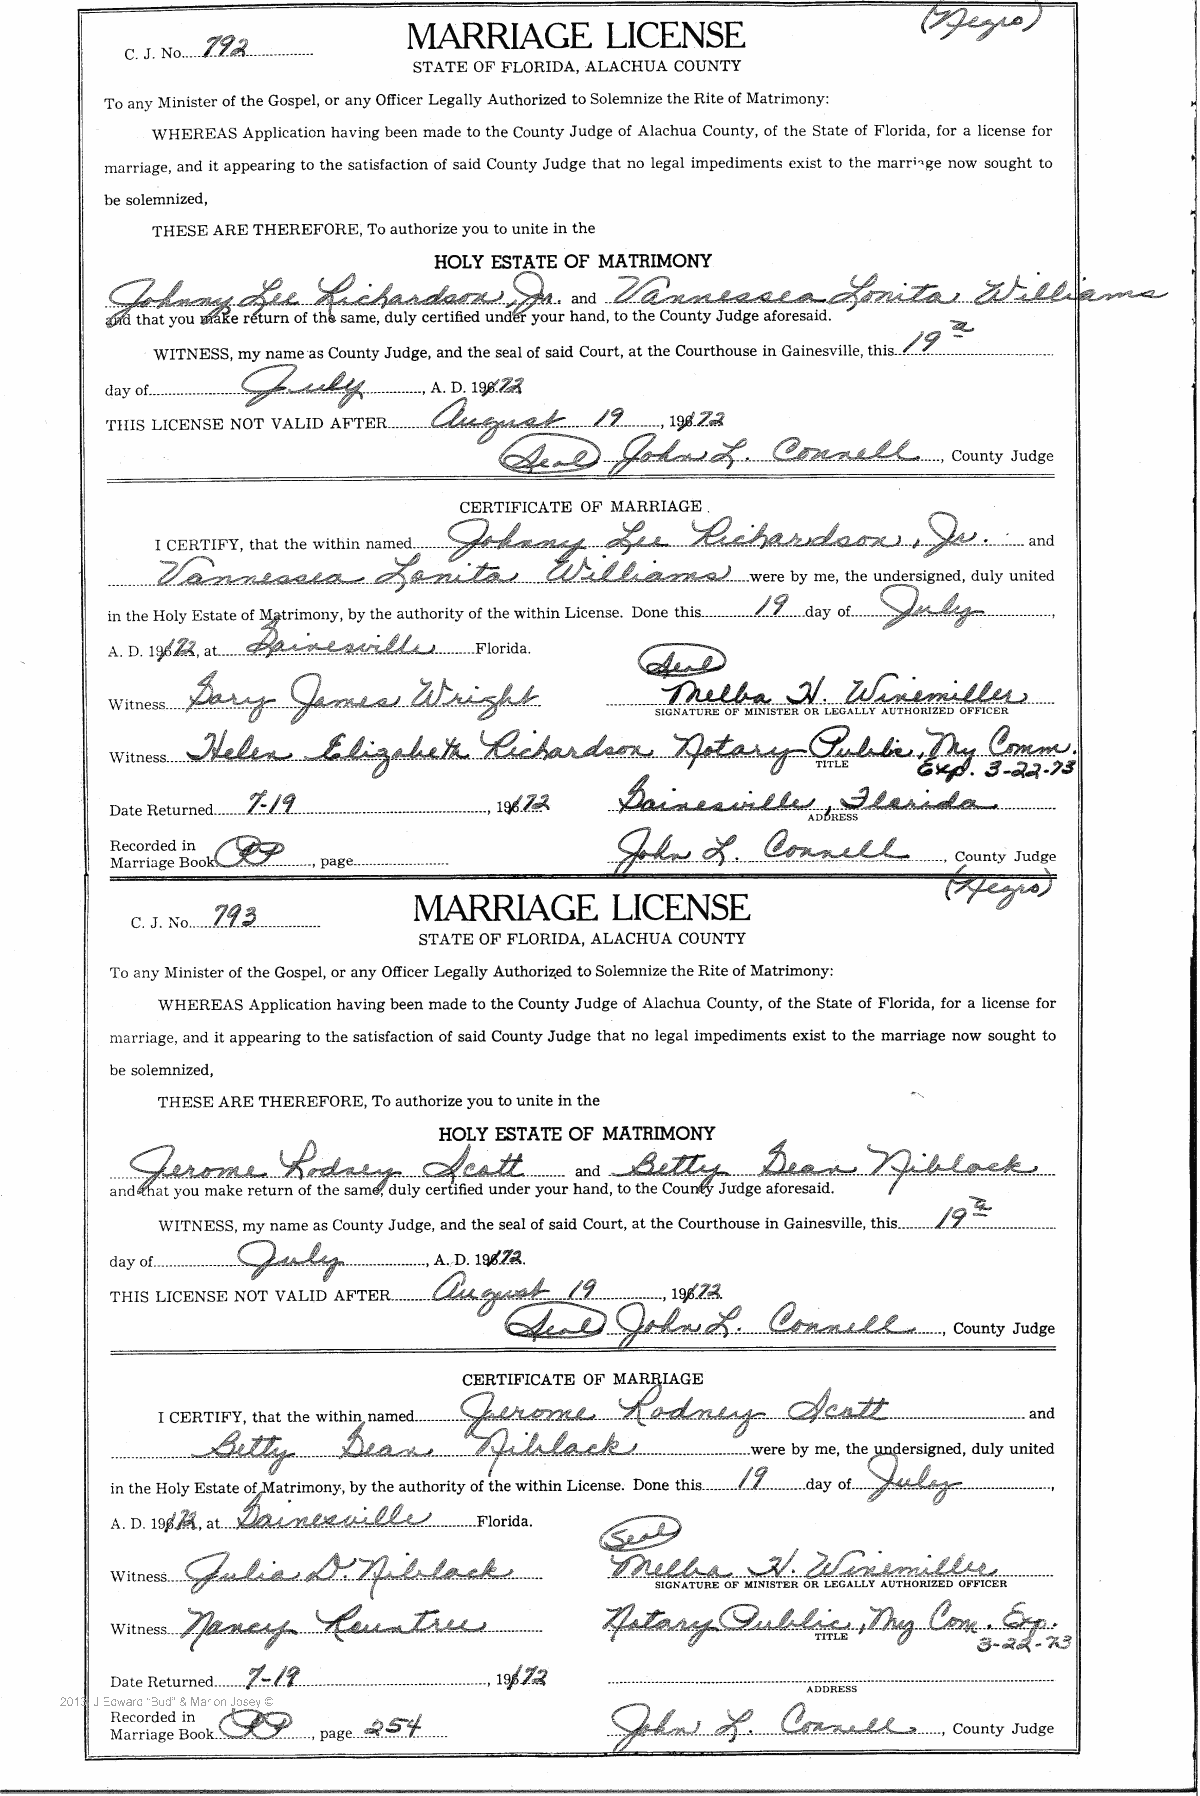 (Negro)
C. J. No. 792
MARRIAGE LICENSE
STATE OF FLORIDA, ALACHUA COUNTY
To any Minister of the Gospel, or any Officer Legally Authorized to Solemnize the Rite of Matrimony:
WHEREAS Application having been made to the County Judge of Alachua County, of the State of Florida, for a license for
marriage, and it appearing to the satisfaction of said County Judge that no legal impediments exist to the marriage now sought to
be solemnized,
THESE ARE THEREFORE, To authorize you to unite in the
HOLY ESTATE OF MATRIMONY
Johnny Lee Richardson, Jr. and Vannessea Lonita Williams
and that you make return of the same, duly certified under your hand, to the County Judge aforesaid.
WITNESS, my name as County Judge, and the seal of said Court, at the Courthouse in Gainesville, this 19
day of July, A. D. 1972
THIS LICENSE NOT VALID AFTER August 19, 1972
(Seal) John L. Connell, County Judge
CERTIFICATE OF MARRIAGE
I CERTIFY, that the within named Johnny Lee Richardson, Jr. and
Vannessea Lonita Williams were by me, the undersigned, duly united
in the Holy Estate of Matrimony, by the authority of the within License. Done this 19 day of July,
A. D. 1972, at Gainesville Florida.
(Seal)
Witness Gary James Wright Melba H. Winemiller
SIGNATURE OF MINISTER OR LEGALLY AUTHORIZED OFFICER
Witness Helen Elizabeth Richardson Notary Public, My Comm.
TITLE Exp. 3-22-73
Date Returned 7-19, 1972 Gainesville, Florida
ADDRESS
Recorded in
Marriage Book, page John L. Connell, County Judge
(Negro)
C. J. No. 793
MARRIAGE LICENSE
STATE OF FLORIDA, ALACHUA COUNTY
To any Minister of the Gospel, or any Officer Legally Authorized to Solemnize the Rite of Matrimony:
WHEREAS Application having been made to the County Judge of Alachua County, of the State of Florida, for a license for
marriage, and it appearing to the satisfaction of said County Judge that no legal impediments exist to the marriage now sought to
be solemnized,
THESE ARE THEREFORE, To authorize you to unite in the
HOLY ESTATE OF MATRIMONY
Jerome Rodney Scott and Betty Gean Niblack
and that you make return of the same, duly certified under your hand, to the County Judge aforesaid.
WITNESS, my name as County Judge, and the seal of said Court, at the Courthouse in Gainesville, this 19
day of July, A. D. 1972.
THIS LICENSE NOT VALID AFTER August 19, 1972
(Seal) John L. Connell, County Judge
CERTIFICATE OF MARRIAGE
I CERTIFY, that the within named Jerome Rodney Scott and
Betty Gean Niblack were by me, the undersigned, duly united
in the Holy Estate of Matrimony, by the authority of the within License. Done this 19 day of July,
A. D. 1972, at Gainesville Florida.
(Seal)
Witness Julia D. Niblack Melba H. Winemiller
SIGNATURE OF MINISTER OR LEGALLY AUTHORIZED OFFICER
Witness Nancy Rountree Notary Public, My Com. Exp.
TITLE 3-22-73
Date Returned 7-19, 1972
ADDRESS
2013 J Edward "Bud" & Marion Josey ©
Recorded in
Marriage Book, page 254 John L. Connell, County Judge